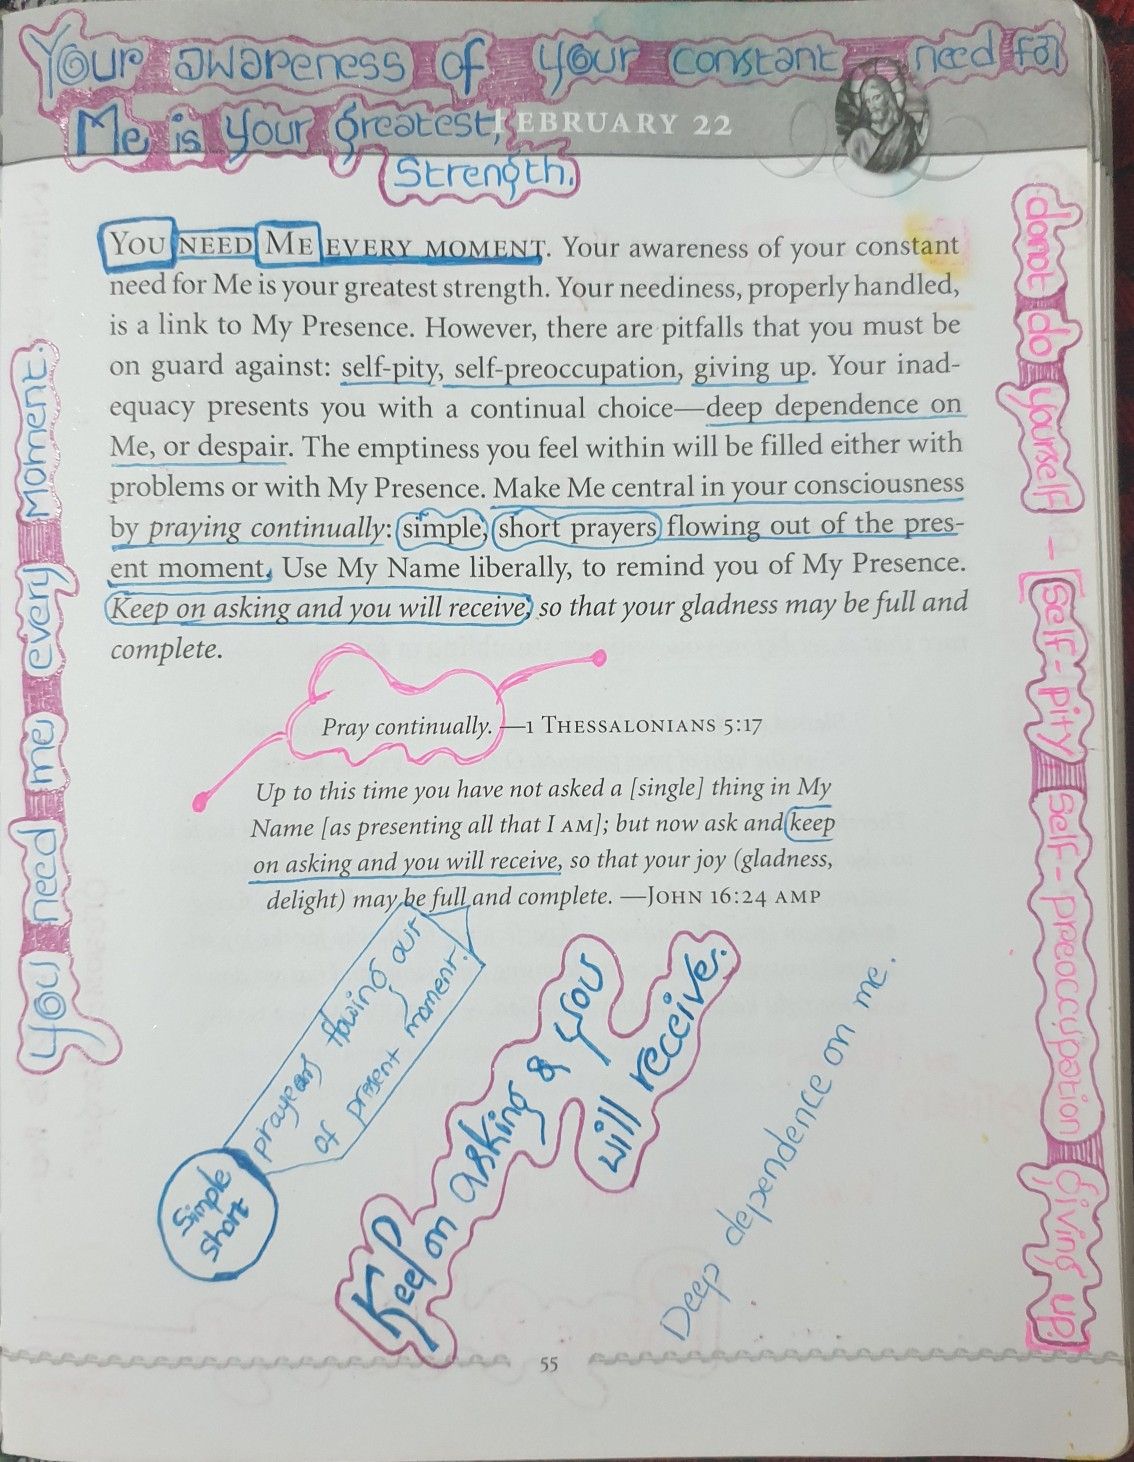 Your awareness of your constant need for
Me is your greatest,
Strength.
FEBRUARY 22
YOU NEED ME EVERY MOMENT. Your awareness of your constant
need for Me is your greatest strength. Your neediness, properly handled,
is a link to My Presence. However, there are pitfalls that you must be
on guard against: self-pity, self-preoccupation, giving up. Your inad-
equacy presents you with a continual choice—deep dependence on
Me, or despair. The emptiness you feel within will be filled either with
problems or with My Presence. Make Me central in your consciousness
by praying continually: simple, short prayers flowing out of the pres-
ent moment. Use My Name liberally, to remind you of My Presence.
Keep on asking and you will receive, so that your gladness may be full and
complete.
Pray continually. —1 THESSALONIANS 5:17
Up to this time you have not asked a [single] thing in My
Name [as presenting all that I AM]; but now ask and keep
on asking and you will receive, so that your joy (gladness,
delight) may be full and complete. —JOHN 16:24 AMP
You need me every moment.
donot do yourself - [self-pity self-preoccupation giving up]
Simple
short
prayers flowing out
of present moment.
Keep on asking & you
will receive.
Deep dependence on me.
55